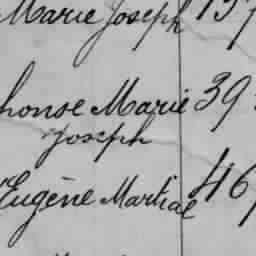 Marie Joseph
honse Marie 39
Joseph
Eugène Martial 46